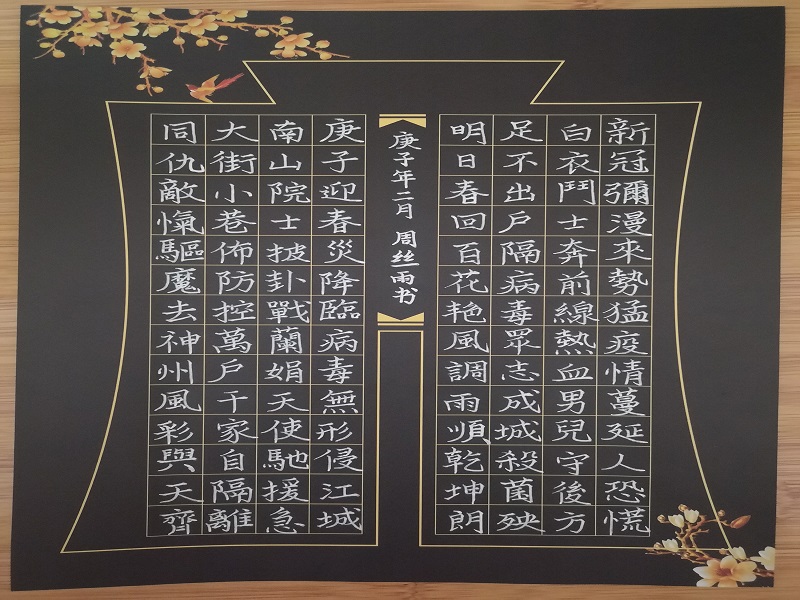 新冠彌漫來勢猛疫情蔓延人恐慌
白衣鬥士奔前線熱血男兒守後方
足不出戶隔病毒眾志成城殺菌殃
明日春回百花艳風調雨順乾坤朗
庚子年二月 周丝雨书
庚子迎春災降臨病毒無形侵江城
南山院士披卦戰蘭娟天使馳援急
大街小巷佈防控萬戶千家自隔離
同仇敵愾驅魔去神州風彩與天齊